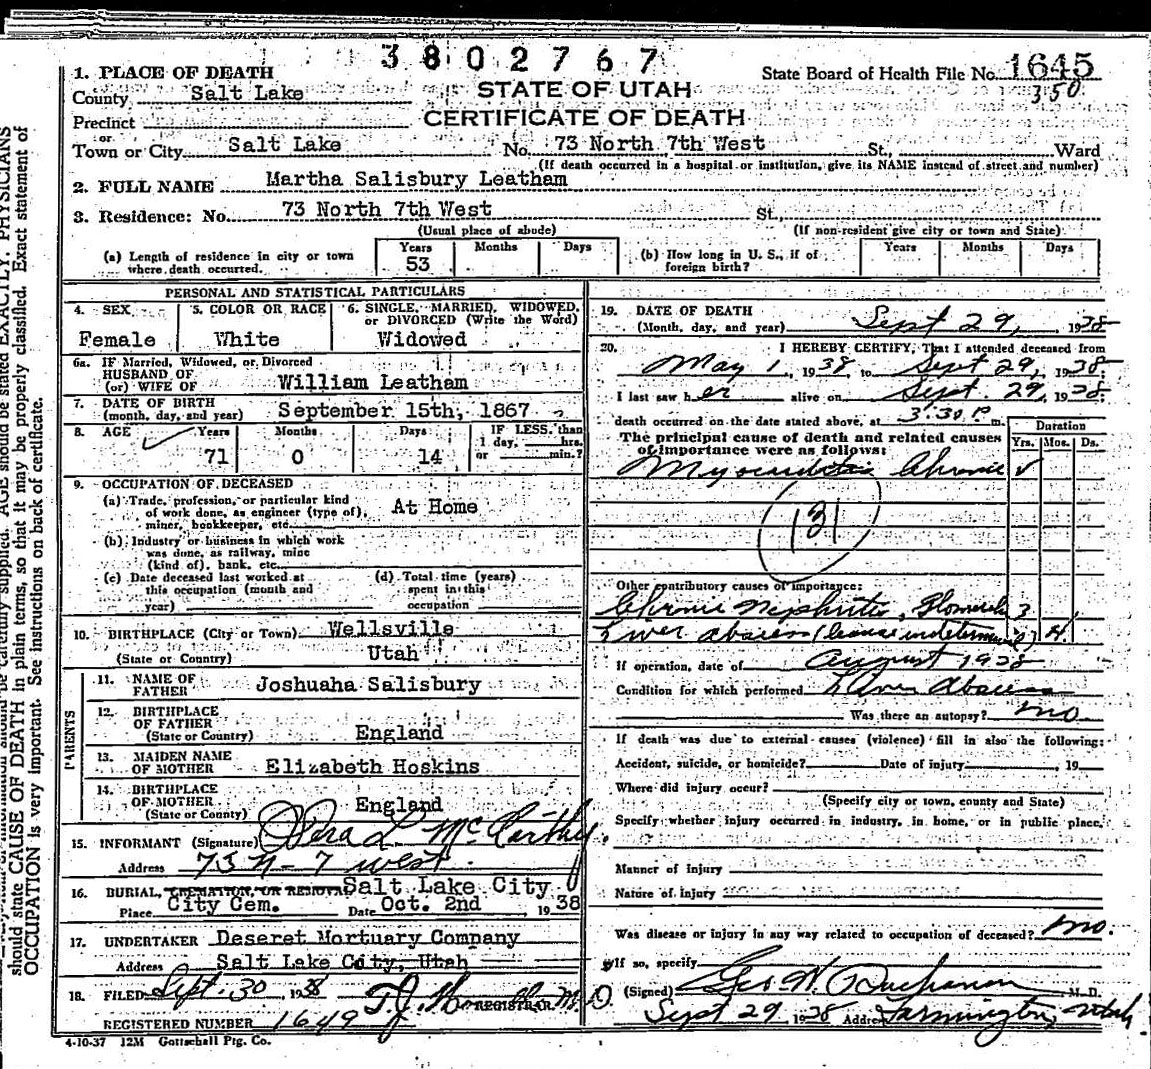 3802767
1. PLACE OF DEATH
State Board of Health File No. 1645
350
County Salt Lake
STATE OF UTAH
Precinct
CERTIFICATE OF DEATH
or
Town or City Salt Lake No. 73 North 7th West St., Ward
(If death occurred in a hospital or institution, give its NAME instead of street and number)
2. FULL NAME Martha Salisbury Leatham
3. Residence: No. 73 North 7th West St.,
(Usual place of abode) (If non-resident give city or town and State)
(a) Length of residence in city or town where death occurred. Years 53 Months Days
(b) How long in U. S., if of foreign birth? Years Months Days
PERSONAL AND STATISTICAL PARTICULARS
4. SEX 5. COLOR OR RACE 6. SINGLE, MARRIED, WIDOWED, or DIVORCED (Write the Word)
Female White Widowed
6a. IF Married, Widowed, or Divorced
HUSBAND OF
(or) WIFE OF William Leatham
7. DATE OF BIRTH
(month, day, and year) September 15th, 1867
8. AGE Years Months Days IF LESS than
1 day, hrs.
71 0 14 or min.?
9. OCCUPATION OF DECEASED
(a) Trade, profession, or particular kind
of work done, as engineer (type of), At Home
miner, bookkeeper, etc.
(b) Industry or business in which work
was done, as railway, mine
(kind of), bank, etc.
(c) Date deceased last worked at
this occupation (month and
year)
(d) Total time (years)
spent in this
occupation
10. BIRTHPLACE (City or Town) Wellsville
(State or Country) Utah
PARENTS
11. NAME OF
FATHER Joshuaha Salisbury
12. BIRTHPLACE
OF FATHER
(State or Country) England
13. MAIDEN NAME
OF MOTHER Elizabeth Hoskins
14. BIRTHPLACE
OF MOTHER
(State or Country) England
15. INFORMANT (Signature) L McCarthy
Address 73 N - 7 West
16. BURIAL, CREMATION, OR REMOVAL Salt Lake City
City Cem.
Place Date Oct. 2nd 1938
17. UNDERTAKER Deseret Mortuary Company
Address Salt Lake City, Utah
18. FILED Sept. 30 1938 T. J. M.D.
REGISTRAR
REGISTERED NUMBER 1649
4-10-37 12M Gottschall Ptg. Co.
19. DATE OF DEATH
(Month, day, and year) Sept 29, 1938
20. I HEREBY CERTIFY, That I attended deceased from
May 1, 1938 to Sept 29, 1938
I last saw her alive on Sept. 29, 1938
death occurred on the date stated above, at 3:30 P m.
The principal cause of death and related causes
of importance were as follows:
Duration
Yrs. Mos. Ds.
Myocarditis Chronic
131
Other contributory causes of importance:
Chronic Nephritis, 3
Liver abscess (cause indetermined) 4
If operation, date of August 1938
Condition for which performed Liver Abscess
Was there an autopsy? no
If death was due to external causes (violence) fill in also the following:
Accident, suicide, or homicide? Date of injury 19
Where did injury occur?
(Specify city or town, county and State)
Specify whether injury occurred in industry, in home, or in public place.
Manner of injury
Nature of injury
Was disease or injury in any way related to occupation of deceased? no.
If so, specify
(Signed) Geo. W. Buchanan M. D.
Sept 29 1938 Address Farmington, Utah
AGE should be stated EXACTLY. PHYSICIANS
should state CAUSE OF DEATH in plain terms, so that it may be properly classified. Exact statement of
OCCUPATION is very important. See instructions on back of certificate.